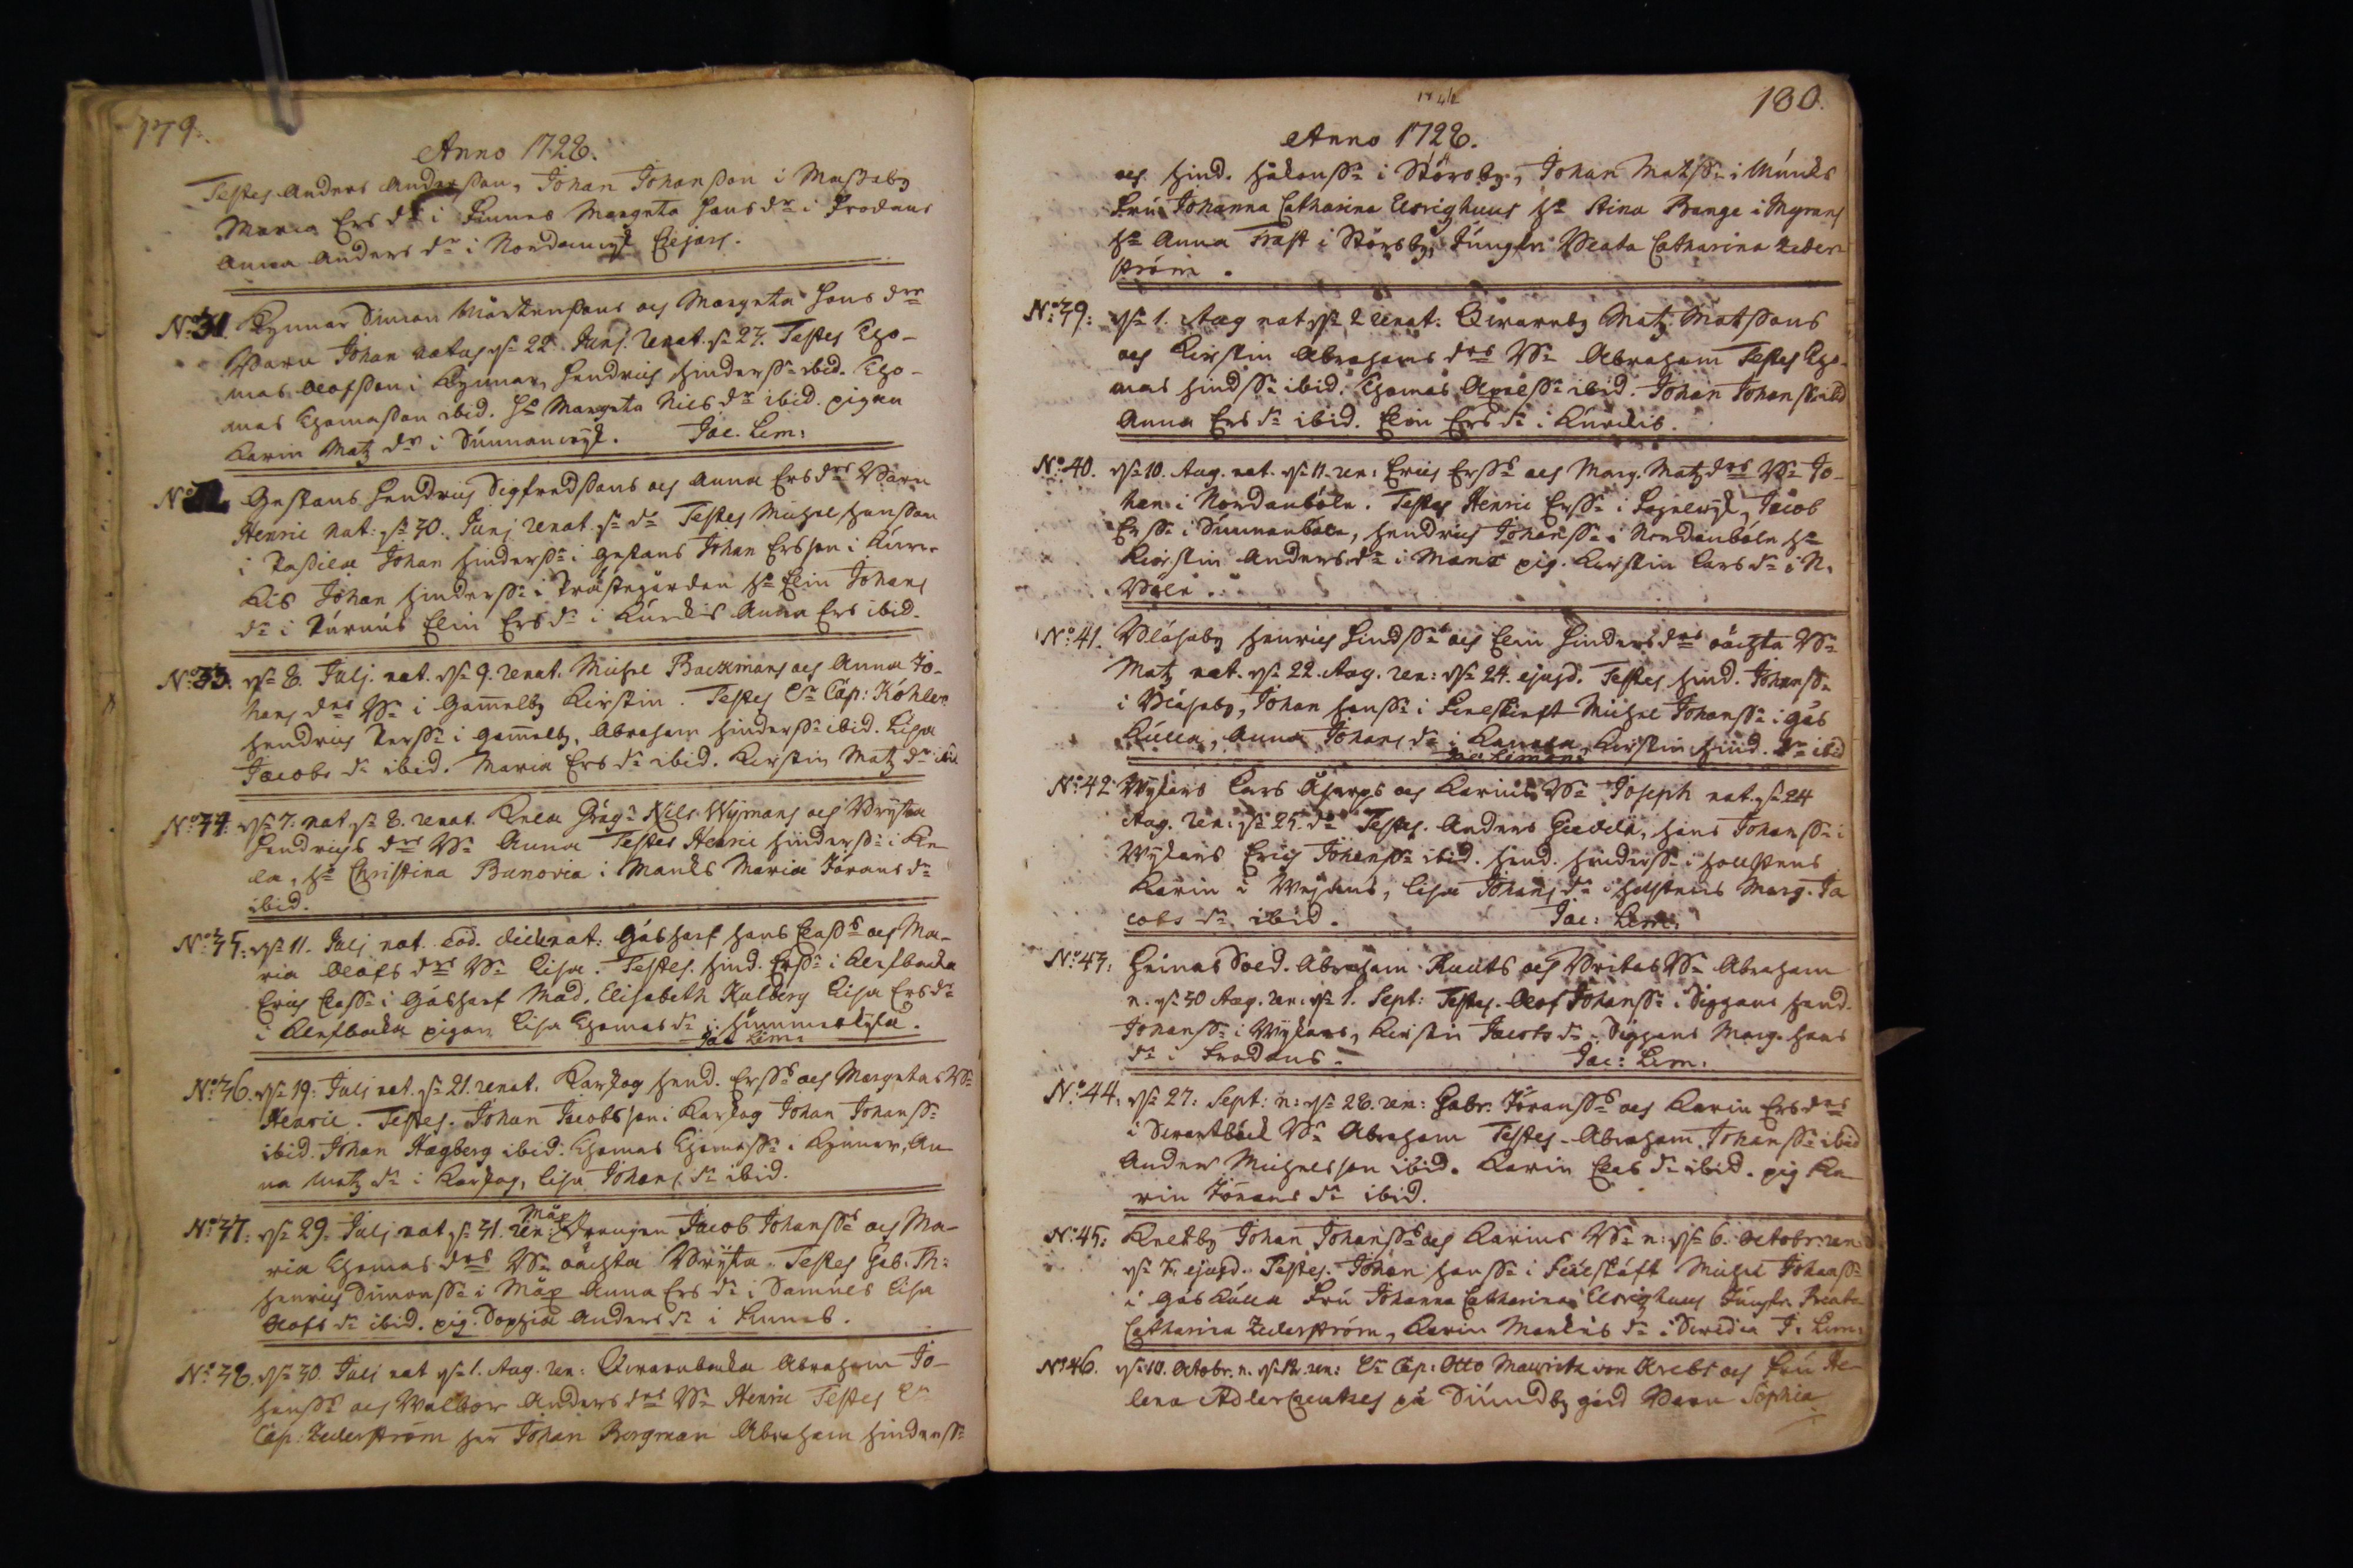 179.
Anno 1728.
Testes Anders Andersson, Johan Johansson i Massaby
Maria Ers dr i Finnes Margeta Hans dr i Frodens
Anna Anders dr i Nordanwijk Ejusd.
No 31. Kynnar Simon Mårtenssons och Margeta Hans drs
Barn Johan natus dn 22. Junj. renat. dn 23. Testes Tho-
mas Olofsson i Kynnar, Hendrich Hinderss. ibid. Tho-
mas Thomasson ibid. H. Margeta Nils dr ibid. pigan
Karin Matz dr i Sunnanwijk. Jac. Lim:
No 32. Gestans Hendrich Sigfredssons och Anna Ers drs Barn
Henric nat: dn 30. Junj renat. dn do Testes Michel Hansson
i Johan Hinderss. i Gestans Johan Ersson i
Johan Hinderss. i Prästegården H. Elin Johans
dr i Elin Ers dr i Anna Ers ibid.
No 33. dn 8. Julj. nat. dn 9. renat. Michel Backmans och Anna Jo-
hans drs Bn i Gammelby Kirstin. Testes Cap: Köhler
Hendrich Perss. i Gammelby, Abraham Hinderss. ibid. Lisa
Jacobs dr ibid. Maria Ers dr ibid. Kirstin Matz dr ibid
No 34. dn 7. nat dn 8. renat. Nils Wijmans och Brijta
Hendrichs drs Bn Anna Testes Henric Hinderss. i
H. Christina Bunovia i Manks Maria Jörans dr
ibid.
No 35. dn 11. Julj nat. eod. die renat: Gåsharf Hans Classs och Ma-
ria Olofs drs Bn Lisa. Testes. Hind. Erss. i Klefbacka
Erich Class. i Gåsharf Mad. Elisabeth Kulberg Lisa Ers dr
i Klefbacka pigan Lisa Thomas dr i
Jac Lim:
No 36. dn 19. Julj nat. dn 21. renat. Karkog Hend. Ersss och Margetas Bn
Henric. Testes. Johan Jacobsson i Karkog Johan Johanss.
ibid. Johan Hagberg ibid. Thomas Thomass. i Kynnar, An-
na Matz dr i Karkog, Lisa Johans dr ibid.
No 37. dn 29. Julj nat dn 31. ren: Drengen Jacob Johansss och Ma-
ria Thomas drs Bn oächta Brijta. Testes Gab. Th:
Henrich Simonss. i Anna Ers dr i Samuels Lisa
Olofs dr ibid. pig. Sophia Anders dr i Finnes.
No 38. dn 30. Julj nat dn 1. Aug. ren: Qwarnbacka Abraham Jo-
hansss och Walbor Anders drs Bn Henric Testes
Cap: Zederström Her Johan Borgman Abraham Hinderss.
180.
Anno 1728.
och Hind. Håkanss. i Störsby, Johan Matss. i Munks
Fru Johanna Catharina H. Stina Bange i Myrans
H. Anna Frast i Störsby, Jungfr: Beata Catharina Zeder-
ström.
No 39. dn 1. Aug nat dn 2 renat. Qwarnby Matz Matssons
och Kirstin Abrahams drs Bn Abraham Testes Tho-
mas Hindss. ibid. Thomas Axelss. ibid. Johan Johanss. ibid
Anna Ers dr ibid. Elin Ers dr i
No 40. dn 10. Aug. nat. dn 11. ren: Erich Ersss och Marg. Matz drs Bn Jo-
han i Nordanböle. Testes Henric Erss. i Jacob
Erss. i Sunnanböle, Hendrich Johanss. i Nordanböle H.
Kirstin Anders dr i pig. Kirstin Lars dr i N.
Böle.
No 41. Blåsaby Henrich Hindsss och Elin Hinders drs oächta Bn
Matz nat. dn 22. Aug. ren: dn 24. ejusd. Testes Hind. Johanss.
i Blåsaby, Johan Hanss. i Michel Johanss. i Gås
kulla, Anna Johans dr i Kirstin Hind. dr ibid
No 42 Wykars Lars och Karins Bn Joseph nat. dn 24
Aug. ren: dn 25. do Testes. Anders Hans Johanss. i
Wykars Erich Johanss. ibid. Hend. Hinderss. i Hollstens
Karin i Lisa Johans dr i Holstens Marg. Ja
cobs dr ibid. Jac: Lim:
No 43. Heimas Sold. Abraham Knuts och Britas Bn Abraham
n. dn 30 Aug. ren: dn 1. Sept: Testes. Olof Johanss. i Siggans Hend.
Johanss. i Wykars, Kirstin Jacobs dr i Siggans Marg. Hans
dr i Frodens. Jac: Lim.
No 44. dn 27. Sept: n: dn 28. ren: Gabr. Jöransss och Karin Ers drs
i Swartbäck Bn Abraham Testes. Abraham Johanss. ibid
Anders Michelsson ibid. Karin Clas dr ibid. pig Ka-
rin Jörans dr ibid.
No 45: Knektby Johan Johansss och Karins Bn n: dn 6. Octobr: ren:
dn ejusd. Testes. Johan Hanss. i Michel Johanss.
i Gåskulla Fru Johanna Catharina Jungfr. Beata
Catharina Zederström, Karin Markus dr i J: Lim:
No 46. dn 10. Octobr. n. dn 12. ren: Cap: Otto Mauritz von Krebs och Fru He-
lena Adlercreutzes på Sundby gård Barn Sophia